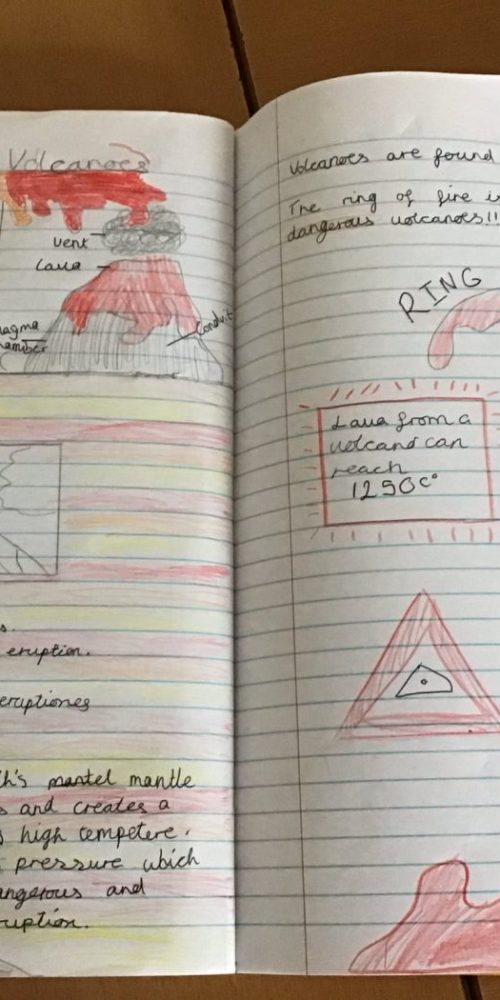 Volcanoes
vent
Lava
Conduit
eruption.
eruptiones
mantel mantle
and creates a
high tempetere.
pressure which
and
Volcanoes are found
The ring of fire is
dangerous volcanoes!!
RING
Lava from a
volcano can
reach
1250c°